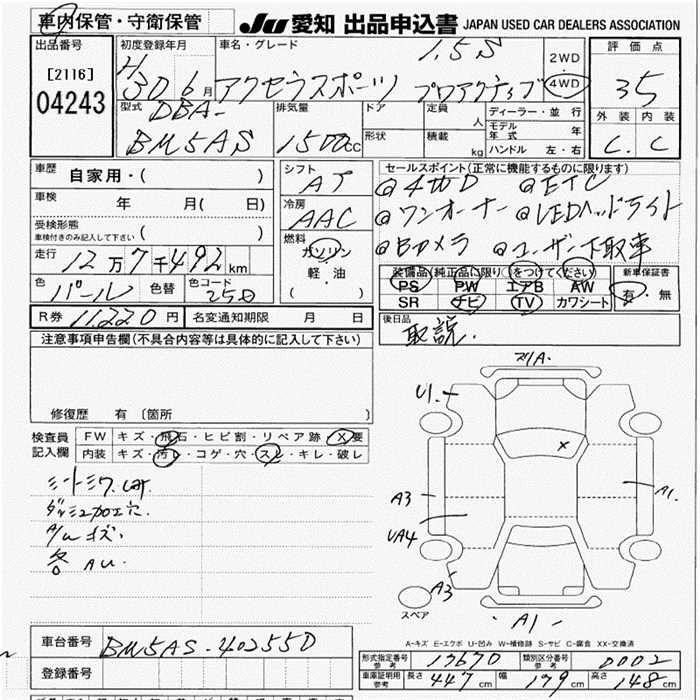 車内保管・守衛保管
JU 愛知 出品申込書 JAPAN USED CAR DEALERS ASSOCIATION
出品番号
[2116]
04243
初度登録年月
H 30 6月
車名・グレード
1.5S
アクセラスポーツ プロアクティブ
2WD
4WD
評価点
3.5
外装 内装
C. C
型式
DBA-
BM5AS
排気量
1500cc
ドア
形状
定員 人
積載 kg
ディーラー・並行
モデル年式 年
ハンドル 左・右
車歴 自家用・( )
車検 年 月( 日)
受検形態
車検付きのみ記入して下さい ( )
走行 12万7千492km
色 パール 色替 色コード 25D
R券 11,220円 名変通知期限 月 日
シフト
AT
冷房
AAC
燃料
ガソリン
軽・油
( )
セールスポイント(正常に機能するものに限ります)
@4WD @ETC
@ワンオーナー @LEDヘッドライト
@Bカメラ @ユーザー下取車
装備品(純正品に限り○をつけてください)
PS PW エアB AW
SR ナビ TV カワシート
新車保証書
有・無
後日品
取説.
注意事項申告欄(不具合内容等は具体的に記入して下さい)
修復歴 有 〔箇所 〕
検査員記入欄
FW キズ・飛石・ヒビ割・リペア跡・X要
内装 キズ・汚れ・コゲ・穴・スレ・キレ・破レ
シートシワ.
ダッシュ加工穴.
A/Wキズ.
各 AU.
U1.
A3
UA4
A3
A1.
A1-
X
スペア
A-キズ E-エクボ U-凹み W-補修跡 S-サビ C-腐食 XX-交換済
車台番号 BM5AS-402550
登録番号
形式指定番号 参考 17670 類別区分番号 参考 0002
車庫証明用 参考 長さ 447cm 幅 179cm 高さ 148cm